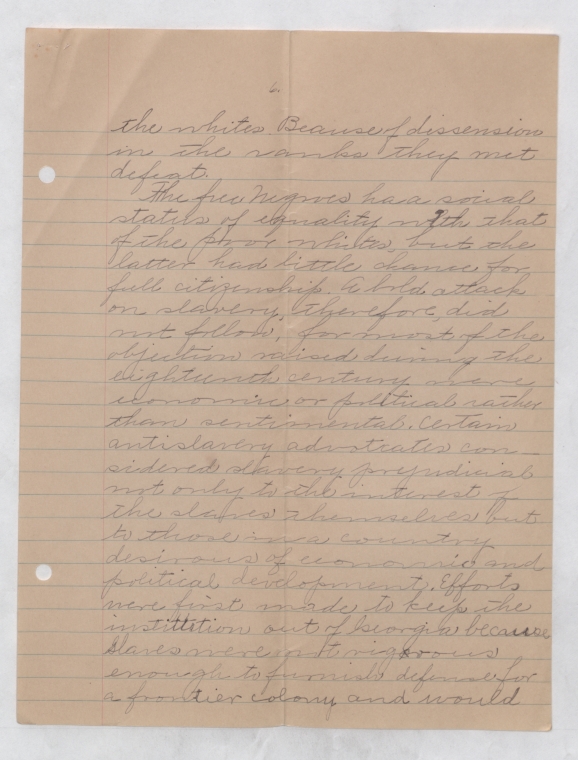 6.
the whites. Beause of dissension
in the ranks they met
defeat.
The free Negroes had a social
status of equality with that
of the poor whites, but the
latter had little chance for
full citizenship. A bold attack
on slavery, therefore, did
not follow, for most of the
objection raised during the
eighteenth century were
economic or political rather
than sentimental. Certain
antislavery advocates con-
sidered slavery prejudicial
not only to the interest of
the slaves themselves but
to those in a country
desirous of economic and
political development. Efforts
were first made to keep the
institution out of Georgia because
slaves were not vigorous
enough to furnish defense for
a frontier colony and would